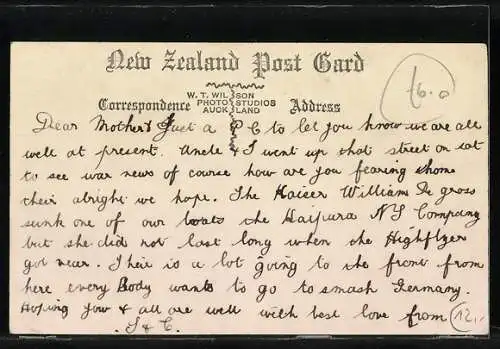 New Zealand Post Card
16.0
W. T. WILSON
PHOTO STUDIOS
AUCKLAND
Correspondence Address
Dear Mother Just a P C to let you know we are all
well at present. Uncle & I went up that street on sat
to see war news of course how are you fearing
their alright we hope. The Kaiser William De gross
sunk one of our boats the Kaipara NZ Company
but she did not last long when the Highflyer
got near. Their is a lot going to the front from
here every Body wants to go to smash Germany.
Hoping you & all are well with best love from
J & C.
12.-